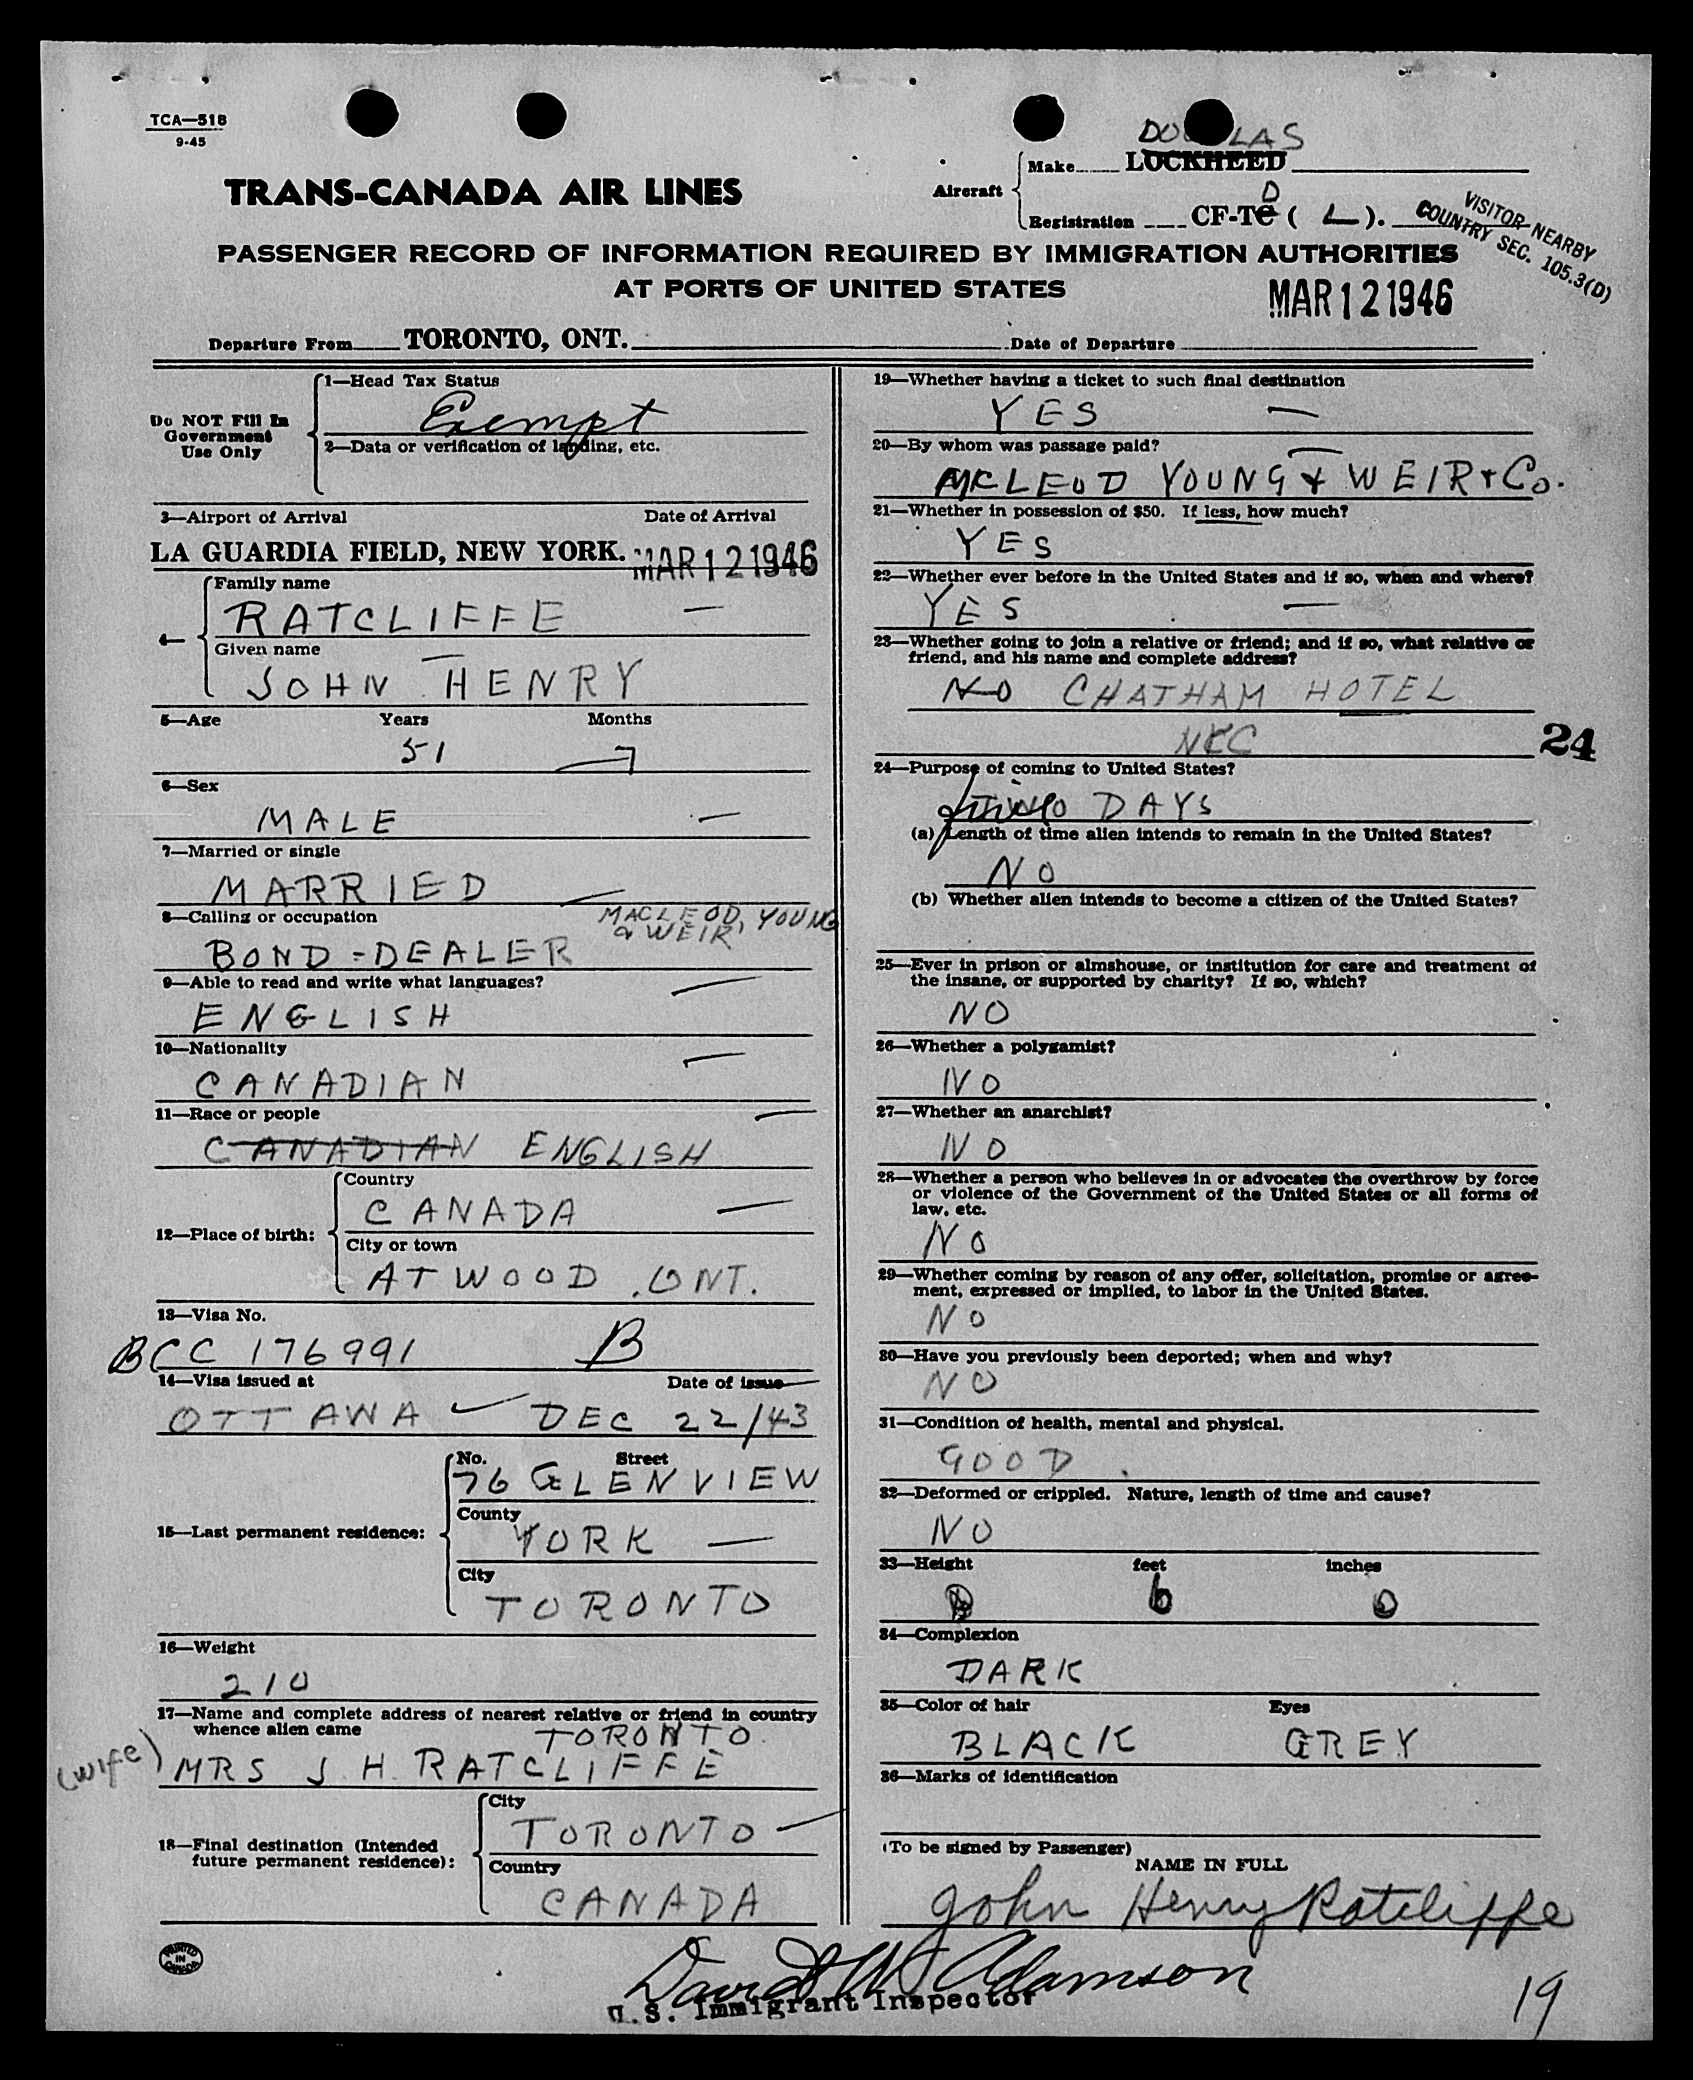 TCA—518
9-45
DOUGLAS
Make LOCKHEED
TRANS-CANADA AIR LINES
Aircraft
D
Registration CF-TC ( L ).
VISITOR-NEARBY
COUNTRY SEC. 105.3(D)
PASSENGER RECORD OF INFORMATION REQUIRED BY IMMIGRATION AUTHORITIES
AT PORTS OF UNITED STATES
MAR 12 1946
Departure From TORONTO, ONT. Date of Departure
Do NOT Fill In
Government
Use Only
1—Head Tax Status
Exempt
2—Data or verification of landing, etc.
3—Airport of Arrival Date of Arrival
LA GUARDIA FIELD, NEW YORK. MAR 12 1946
4—
Family name
RATCLIFFE
Given name
JOHN HENRY
5—Age Years Months
51 7
6—Sex
MALE
7—Married or single
MARRIED
8—Calling or occupation
MACLEOD, YOUNG
& WEIR
BOND-DEALER
9—Able to read and write what languages?
ENGLISH
10—Nationality
CANADIAN
11—Race or people
CANADIAN ENGLISH
12—Place of birth:
Country
CANADA
City or town
ATWOOD, ONT.
13—Visa No.
BCC 176991 B
14—Visa issued at Date of issue
OTTAWA DEC 22/43
15—Last permanent residence:
No. Street
76 GLENVIEW
County
YORK
City
TORONTO
16—Weight
210
17—Name and complete address of nearest relative or friend in country
whence alien came
TORONTO
(wife) MRS J. H. RATCLIFFE
18—Final destination (Intended
future permanent residence):
City
TORONTO
Country
CANADA
PRINTED
IN
CANADA
19—Whether having a ticket to such final destination
YES
20—By whom was passage paid?
MCLEOD YOUNG & WEIR & Co.
21—Whether in possession of $50. If less, how much?
YES
22—Whether ever before in the United States and if so, when and where?
YES
23—Whether going to join a relative or friend; and if so, what relative or
friend, and his name and complete address?
NO CHATHAM HOTEL
NYC
24
24—Purpose of coming to United States?
TWO DAYS
(a) Length of time alien intends to remain in the United States?
NO
(b) Whether alien intends to become a citizen of the United States?
25—Ever in prison or almshouse, or institution for care and treatment of
the insane, or supported by charity? If so, which?
NO
26—Whether a polygamist?
NO
27—Whether an anarchist?
NO
28—Whether a person who believes in or advocates the overthrow by force
or violence of the Government of the United States or all forms of
law, etc.
NO
29—Whether coming by reason of any offer, solicitation, promise or agree-
ment, expressed or implied, to labor in the United States.
NO
30—Have you previously been deported; when and why?
NO
31—Condition of health, mental and physical.
GOOD.
32—Deformed or crippled. Nature, length of time and cause?
NO
33—Height feet inches
6 0
34—Complexion
DARK
35—Color of hair Eyes
BLACK GREY
36—Marks of identification
(To be signed by Passenger)
NAME IN FULL
John Henry Ratcliffe
David W. Adamson
U.S. Immigrant Inspector
19